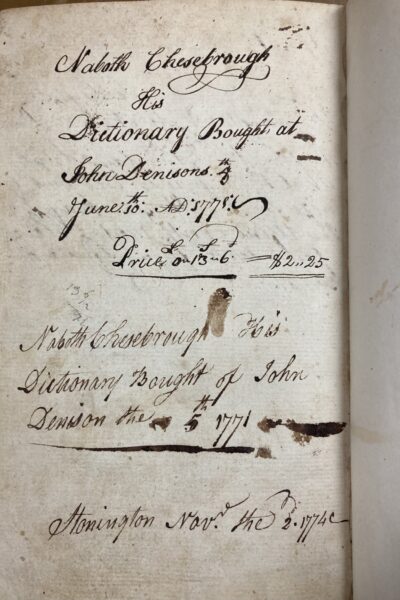 Naboth Chesebrough
His
Dictionary Bought at
John Denisons 4th
June 10th AD 1771
Price 0 13 6 = $2 25
Naboth Chesebrough His
Dictionary Bought of John
Denison the 5th 1771
Stonington Novr the 2 1774